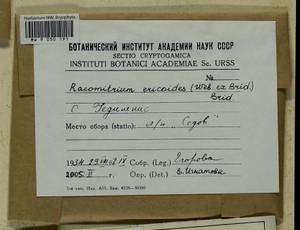 Herbarium MW, Bryophyta
MW 9 050 191
БОТАНИЧЕСКИЙ ИНСТИТУТ АКАДЕМИИ НАУК СССР
SECTIO CRYPTOGAMICA
INSTITUTI BOTANICI ACADEMIAE Sc. URSS
№
Racomitrium ericoides (Web. ex Brid.)
Brid
Место сбора (statio): л/п "Седов"
1934 29 VIII-2 IX Собр. (Leg.) Егорова
2005 II г. Опр. (Det.) Е. Игнатова